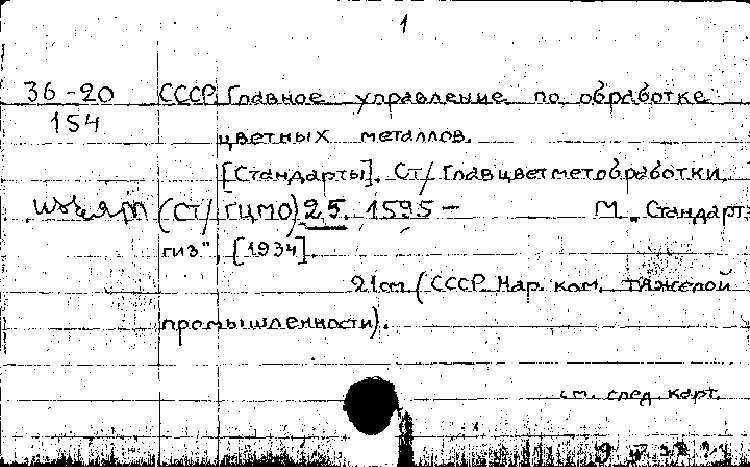 1
36-20 СССР. Главное управление по обработке
154 цветных металлов.
[Стандарты]. Ст/Главцветметобработки.
изъят (Ст/ГЦМО) 25. 1595- М. „Стандарт-
гиз", [1934].
21 см. (СССР. Нар. ком. тяжелой
промышленности).
см. след. карт.